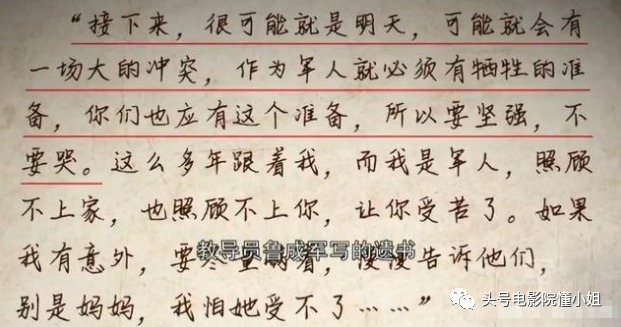 “接下来，很可能就是明天，可能就会有
一场大的冲突，作为军人就必须有牺牲的准
备，你们也应有这个准备，所以要坚强，不
要哭。这么多年跟着我，而我是军人，照顾
不上家，也照顾不上你，让你受苦了。如果
我有意外，要尽量瞒着，慢慢告诉他们，
教导员鲁成军写的遗书
别是妈妈，我怕她受不了……”
头号电影院懂小姐